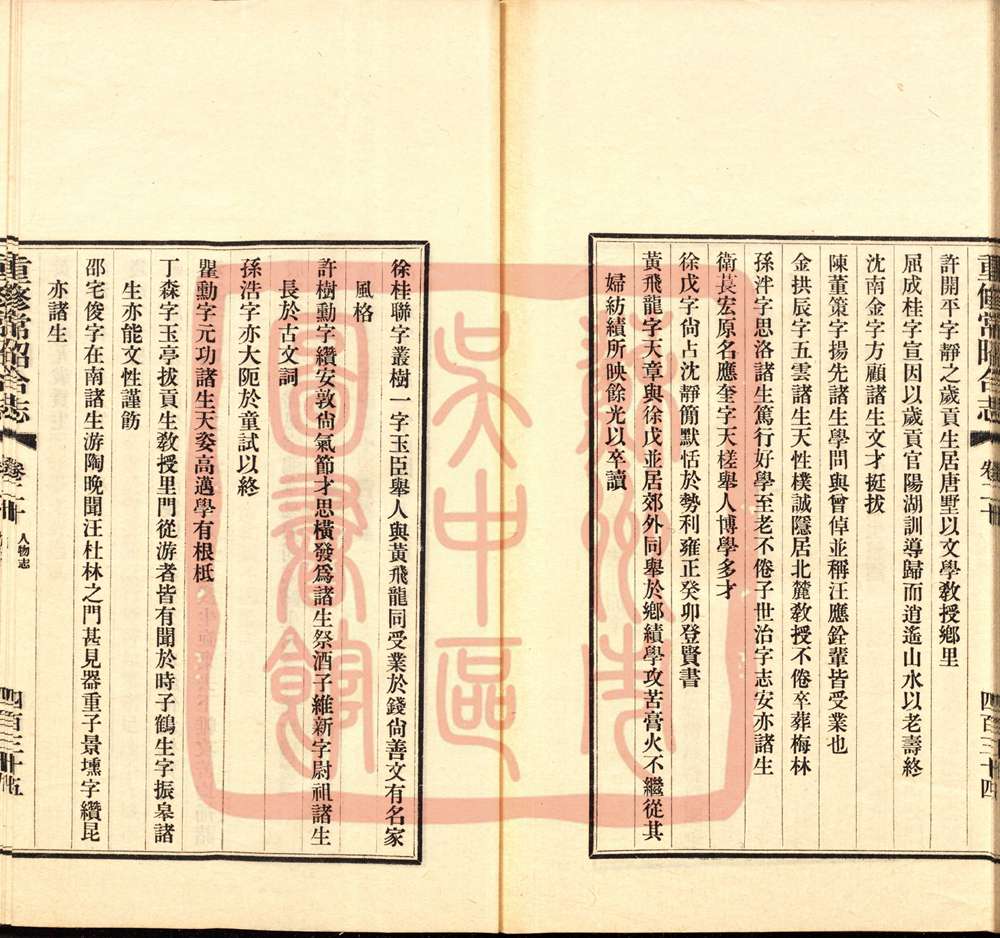 重修常昭合志 卷二十 四百三十四
許開平字靜之歲貢生居唐墅以文學敎授鄕里
屈成桂字宣因以歲貢官陽湖訓導歸而逍遙山水以老壽終
沈南金字方顧諸生文才挺拔
陳董策字揚先諸生學問與曾倬並稱汪應銓輩皆受業也
金拱辰字五雲諸生天性樸誠隱居北麓敎授不倦卒葬梅林
孫泮字思洛諸生篤行好學至老不倦子世治字志安亦諸生
衛萇宏原名應奎字天槎舉人博學多才
徐戊字尙占沈靜簡默恬於勢利雍正癸卯登賢書
黃飛龍字天章與徐戊並居郊外同舉於鄕績學攻苦膏火不繼從其
婦紡績所映餘光以卒讀
徐桂聯字叢樹一字玉臣舉人與黃飛龍同受業於錢尙善文有名家
風格
許樹勳字纘安敦尙氣節才思橫發爲諸生祭酒子維新字尉祖諸生
長於古文詞
孫浩字亦大阨於童試以終
瞿勳字元功諸生天姿高邁學有根柢
丁森字玉亭拔貢生敎授里門從游者皆有聞於時子鶴生字振皋諸
生亦能文性謹飭
邵宅俊字在南諸生游陶晚聞汪杜林之門甚見器重子景壎字纘昆
亦諸生
重修常昭合志 卷二十 人物志 四百三十五
蘇州市
吳中區
圖書館